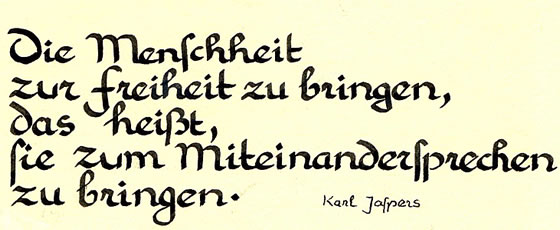 Die Menſchheit
zur freiheit zu bringen,
das heißt,
ſie zum Miteinanderſprechen
zu bringen.
Karl Jaſpers